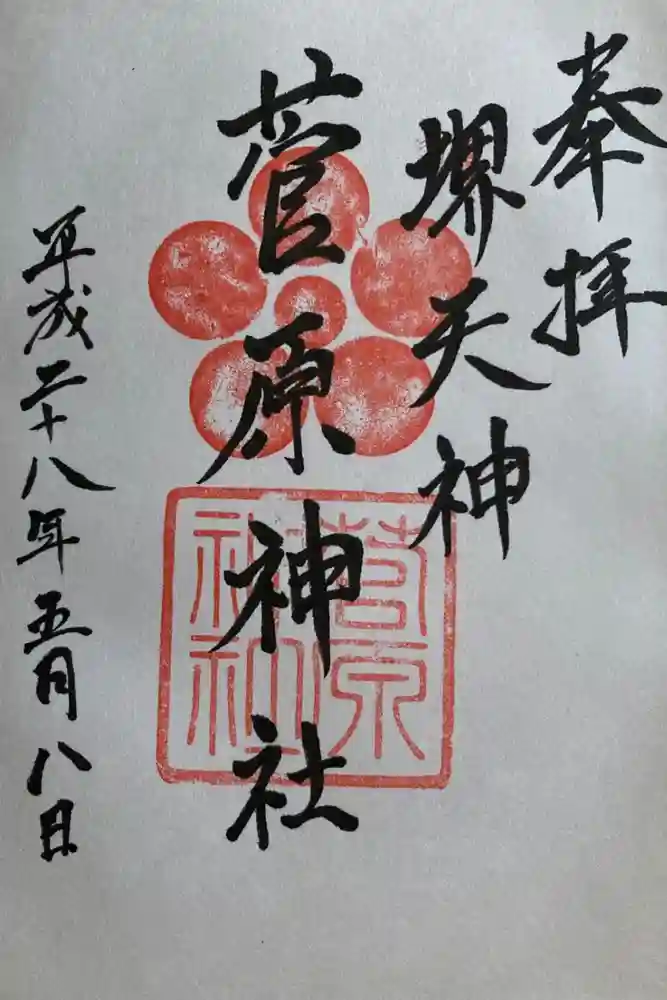 奉拝
堺天神
菅原神社
平成二十八年五月八日
菅原神社